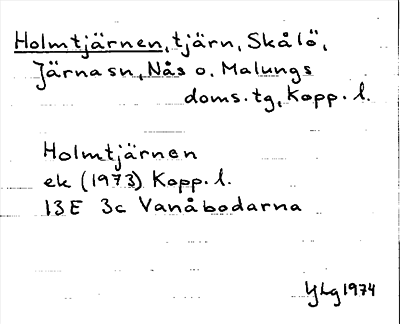 Holmtjärnen, tjärn, Skålö,
Järnasn, Nås o. Malungs
doms. tg, Kopp. l.
Holmtjärnen
ek (1973) Kopp. l.
13E 3c Vanåbodarna
YLg 1974